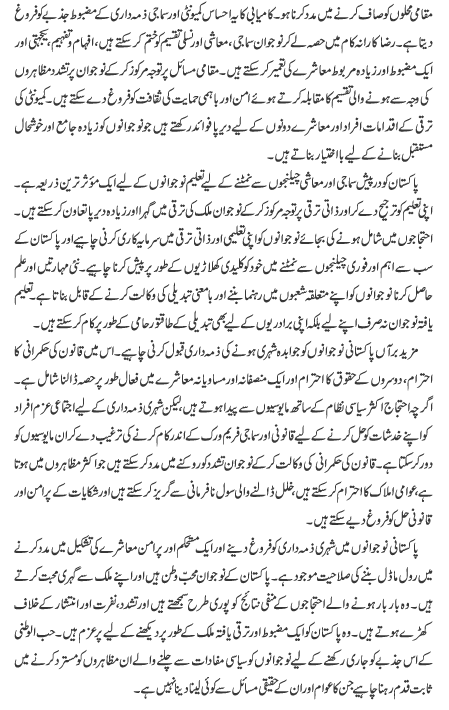 مقامی محلوں کو صاف کرنے میں مدد کرنا ہو۔ کامیابی کا یہ احساس کمیونٹی اور سماجی ذمہ داری کے مضبوط جذبے کو فروغ
دیتا ہے۔ رضا کارانہ کام میں حصہ لے کر نوجوان سماجی، معاشی اور نسلی تقسیم کو ختم کر سکتے ہیں، افہام و تفہیم، یکجہتی اور
ایک مضبوط اور زیادہ مربوط معاشرے کی تعمیر کر سکتے ہیں۔ مقامی مسائل پر توجہ مرکوز کر کے نوجوان پر تشدد مظاہروں
کی وجہ سے ہونے والی تقسیم کا مقابلہ کرتے ہوئے امن اور باہمی حمایت کی ثقافت کو فروغ دے سکتے ہیں۔ کمیونٹی کی
ترقی کے اقدامات افراد اور معاشرے دونوں کے لیے دیرپا فوائد رکھتے ہیں جو نوجوانوں کو زیادہ جامع اور خوشحال
مستقبل بنانے کے لیے با اختیار بناتے ہیں۔
پاکستان کو درپیش سماجی اور معاشی چیلنجوں سے نمٹنے کے لیے تعلیم نوجوانوں کے لیے ایک مؤثر ترین ذریعہ ہے۔
اپنی تعلیم کو ترجیح دے کر اور ذاتی ترقی پر توجہ مرکوز کر کے نوجوان ملک کی ترقی میں گہرا اور زیادہ دیرپا تعاون کر سکتے ہیں۔
احتجاجوں میں شامل ہونے کی بجائے نوجوانوں کو اپنی تعلیمی اور ذاتی ترقی میں سرمایہ کاری کرنی چاہیے اور پاکستان کے
سب سے اہم اور فوری چیلنجوں سے نمٹنے میں خود کو کلیدی کھلاڑیوں کے طور پر پیش کرنا چاہیے۔ نئی مہارتیں اور علم
حاصل کرنا نوجوانوں کو اپنے متعلقہ شعبوں میں رہنما بننے اور بامعنی تبدیلی کی وکالت کرنے کے قابل بناتا ہے۔ تعلیم
یافتہ نوجوان نہ صرف اپنے لیے بلکہ اپنی برادریوں کے لیے بھی تبدیلی کے طاقتور حامی کے طور پر کام کر سکتے ہیں۔
مزید برآں پاکستانی نوجوانوں کو جوابدہ شہری ہونے کی ذمہ داری قبول کرنی چاہیے۔ اس میں قانون کی حکمرانی کا
احترام، دوسروں کے حقوق کا احترام اور ایک منصفانہ اور مساویانہ معاشرے میں فعال طور پر حصہ ڈالنا شامل ہے۔
اگرچہ احتجاج اکثر سیاسی نظام کے ساتھ مایوسیوں سے پیدا ہوتے ہیں، لیکن شہری ذمہ داری کے لیے اجتماعی عزم افراد
کو اپنے خدشات کو حل کرنے کے لیے قانونی اور سماجی فریم ورک کے اندر کام کرنے کی ترغیب دے کر ان مایوسیوں کو
دور کر سکتا ہے۔ قانون کی حکمرانی کی وکالت کر کے نوجوان تشدد کو روکنے میں مدد کر سکتے ہیں جو اکثر مظاہروں میں ہوتا
ہے، عوامی املاک کا احترام کر سکتے ہیں، خلل ڈالنے والی سول نافرمانی سے گریز کر سکتے ہیں اور شکایات کے پر امن اور
قانونی حل کو فروغ دے سکتے ہیں۔
پاکستانی نوجوانوں میں شہری ذمہ داری کو فروغ دینے اور ایک مستحکم اور پر امن معاشرے کی تشکیل میں مدد کرنے
میں رول ماڈل بننے کی صلاحیت موجود ہے۔ پاکستان کے نوجوان محب وطن ہیں اور اپنے ملک سے گہری محبت کرتے
ہیں۔ وہ بار بار ہونے والے احتجاجوں کے منفی نتائج کو پوری طرح سمجھتے ہیں اور تشدد، نفرت اور انتشار کے خلاف
کھڑے ہوتے ہیں۔ وہ پاکستان کو ایک مضبوط اور ترقی یافتہ ملک کے طور پر دیکھنے کے لیے پر عزم ہیں۔ حب الوطنی
کے اس جذبے کو جاری رکھنے کے لیے نوجوانوں کو سیاسی مفادات سے چلنے والے ان مظاہروں کو مسترد کرنے میں
ثابت قدم رہنا چاہیے جن کا عوام اور ان کے حقیقی مسائل سے کوئی لینا دینا نہیں ہے۔